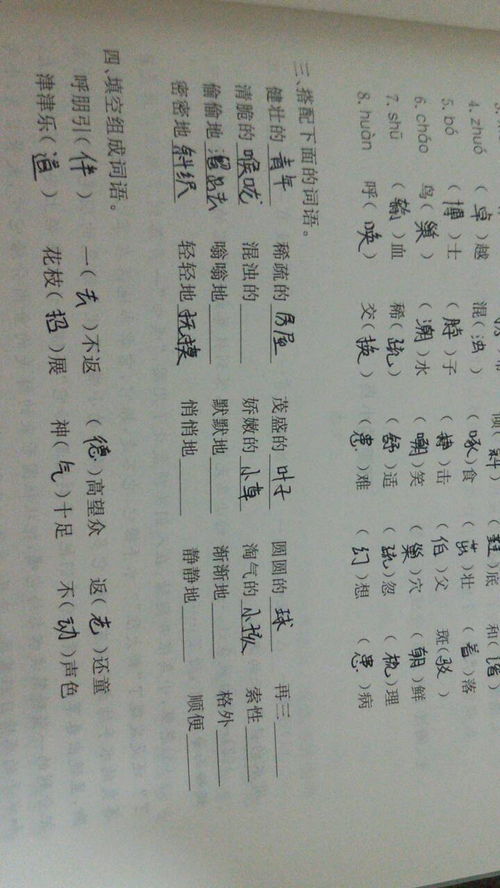 倾(斜) (鞋)底 和(谐)
4. zhuó (卓)越 混(浊) (啄)食 (茁)壮 (着)落
5. bó (博)士 (脖)子 (搏)击 (伯)父 斑(驳)
6. cháo 鸟(巢) (潮)水 (嘲)笑 (巢)穴 (朝)鲜
7. shū (输)血 稀(疏) (舒)适 (疏)忽 (梳)理
8. huàn 呼(唤) 交(换) (患)难 (幻)想 (患)病
三、搭配下面的词语。
健壮的 青年 稀疏的 房屋 茂盛的 叶子 圆圆的 球 再三
清脆的 喉咙 混浊的 娇嫩的 小草 淘气的 小孩 索性
偷偷地 溜出去 嗡嗡地 默默地 渐渐地 格外
密密地 斜织 轻轻地 抚摸 悄悄地 静静地 顺便
四、填空组成词语。
呼朋引(伴) 一(去)不返 (德)高望众 返(老)还童
津津乐(道) 花枝(招)展 神(气)十足 不(动)声色